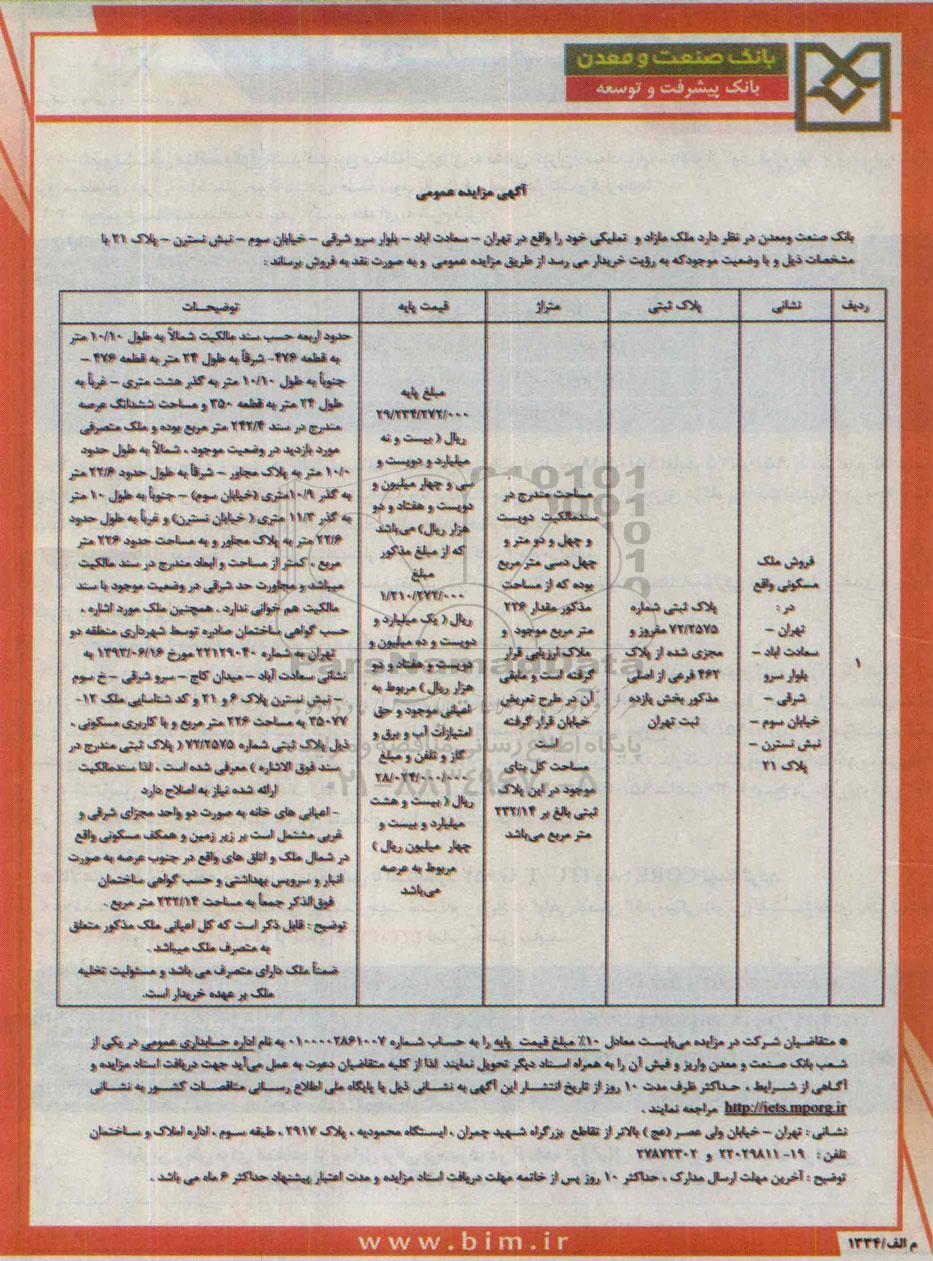 بانک صنعت و معدن
بانک پیشرفت و توسعه
آگهی مزایده عمومی
بانک صنعت ومعدن در نظر دارد ملک مازاد و تملیکی خود را واقع در تهران – سعادت اباد – بلوار سرو شرقی – خیابان سوم – نبش نسترن – پلاک ۲۱ با
مشخصات ذیل و با وضعیت موجودکه به رؤیت خریدار می رسد از طریق مزایده عمومی و به صورت نقد به فروش برساند :
ردیف
نشانی
پلاک ثبتی
متراژ
قیمت پایه
توضیحات
۱
فروش ملک
مسکونی واقع
در :
تهران –
سعادت اباد –
بلوار سرو
شرقی –
خیابان سوم –
نبش نسترن –
پلاک ۲۱
پلاک ثبتی شماره
۷۲/۲۵۷۵ مفروز و
مجزی شده از پلاک
۴۶۲ فرعی از اصلی
مذکور بخش یازده
ثبت تهران
مساحت مندرج در
سندمالکیت دویست
و چهل و دو متر و
چهل دسی متر مربع
بوده که از مساحت
مذکور مقدار ۲۲۶
متر مربع موجود و
ملاک ارزیابی قرار
گرفته است و مابقی
آن در طرح تعریض
خیابان قرار گرفته
است
مساحت کل بنای
موجود در این پلاک
ثبتی بالغ بر ۲۳۲/۱۴
متر مربع می‌باشد
مبلغ پایه
۲۹/۲۳۴/۲۷۲/۰۰۰
ریال ( بیست و نه
میلیارد و دویست و
سی و چهار میلیون و
دویست و هفتاد و دو
هزار ریال) می‌باشد
که از مبلغ مذکور
مبلغ
۱/۲۱۰/۲۷۲/۰۰۰
ریال ( یک میلیارد و
دویست و ده میلیون و
دویست و هفتاد و دو
هزار ریال ) مربوط به
اعیانی موجود و حق
امتیازات آب و برق و
گاز و تلفن و مبلغ
۲۸/۰۲۴/۰۰۰/۰۰۰
ریال ( بیست و هشت
میلیارد و بیست و
چهار میلیون ریال )
مربوط به عرصه
می‌باشد
حدود اربعه حسب سند مالکیت شمالاً به طول ۱۰/۱۰ متر
به قطعه ۴۷۶- شرقاً به طول ۲۴ متر به قطعه ۴۷۶ –
جنوباً به طول ۱۰/۱۰ متر به گذر هشت متری – غرباً به
طول ۲۴ متر به قطعه ۲۵۰ و مساحت ششدانگ عرصه
مندرج در سند ۲۴۲/۴ متر مربع بوده و ملک متصرفی
مورد بازدید در وضعیت موجود ، شمالاً به طول حدود
۱۰/۰ متر به پلاک مجاور – شرقاً به طول حدود ۲۲/۶ متر
به گذر ۱۰/۹متری (خیابان سوم) – جنوباً به طول ۱۰ متر
به گذر ۱۱/۳ متری ( خیابان نسترن) و غرباً به طول حدود
۲۲/۶ متر به پلاک مجاور و به مساحت حدود ۲۲۶ متر
مربع ، کمتر از مساحت و ابعاد مندرج در سند مالکیت
میباشد و مجاورت حد شرقی در وضعیت موجود با سند
مالکیت هم خوانی ندارد . همچنین ملک مورد اشاره ،
حسب گواهی ساختمان صادره توسط شهرداری منطقه دو
تهران به شماره ۲۲۱۲۹۰۴۰ مورخ ۱۳۹۳/۰۶/۱۶ به
نشانی سعادت آباد – میدان کاج – سرو شرقی – خ سوم
– نبش نسترن پلاک ۶ و ۲۱ و کد شناسایی ملک ۱۲-
۳۵۰۷۷ به مساحت ۲۲۶ متر مربع و با کاربری مسکونی ،
ذیل پلاک ثبتی شماره ۷۲/۲۵۷۵ ( پلاک ثبتی مندرج در
سند فوق الاشاره ) معرفی شده است ، لذا سندمالکیت
ارائه شده نیاز به اصلاح دارد
– اعیانی های خانه به صورت دو واحد مجزای شرقی و
غربی مشتمل است بر زیر زمین و همکف مسکونی واقع
در شمال ملک و اتاق های واقع در جنوب عرصه به صورت
انبار و سرویس بهداشتی و حسب گواهی ساختمان
فوق‌الذکر جمعاً به مساحت ۲۳۲/۱۴ متر مربع .
توضیح : قابل ذکر است که کل اعیانی ملک مذکور متعلق
به متصرف ملک میباشد .
ضمناً ملک دارای متصرف می باشد و مسئولیت تخلیه
ملک بر عهده خریدار است.
* متقاضیان شرکت در مزایده می‌بایست معادل ۱۰٪ مبلغ قیمت پایه را به حساب شماره ۰۱۰۰۰۰۳۸۶۱۰۰۷ به نام اداره حسابداری عمومی در یکی از
شعب بانک صنعت و معدن واریز و فیش آن را به همراه اسناد دیگر تحویل نمایند لذا از کلیه متقاضیان دعوت به عمل می‌آید جهت دریافت اسناد مزایده و
آگاهی از شرایط ، حداکثر ظرف مدت ۱۰ روز از تاریخ انتشار این آگهی به نشانی ذیل یا پایگاه ملی اطلاع رسانی مناقصات کشور به نشانی
http://iets.mporg.ir مراجعه نمایند .
نشانی : تهران – خیابان ولی عصر (عج ) بالاتر از تقاطع بزرگراه شهید چمران ، ایستگاه محمودیه ، پلاک ۲۹۱۷ ، طبقه سوم ، اداره املاک و ساختمان
تلفن : ۱۹-۲۲۰۲۹۸۱۱ و ۲۷۸۷۲۳۰۲
توضیح : آخرین مهلت ارسال مدارک ، حداکثر ۱۰ روز پس از خاتمه مهلت دریافت اسناد مزایده و مدت اعتبار پیشنهاد حداکثر ۶ ماه می باشد .
www.bim.ir
م الف/۱۳۳۴
ParsNamadData
پایگاه اطلاع رسانی مناقصه و مزایده
۰۲۱-۸۸۳۴۹۶۷۰-۵